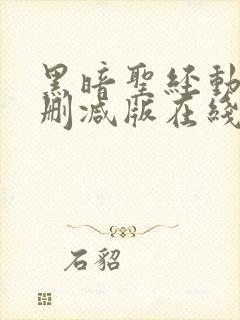 黑暗聖経動
删减版在綫
石貂